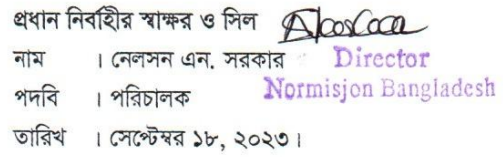 প্রধান নির্বাহীর স্বাক্ষর ও সিল
নাম । নেলসন এন. সরকার
Director
পদবি । পরিচালক
Normisjon Bangladesh
তারিখ । সেপ্টেম্বর ১৮, ২০২৩।